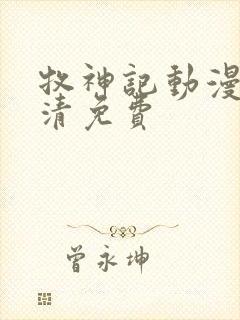 牧神記動漫
清免費
曾永坤